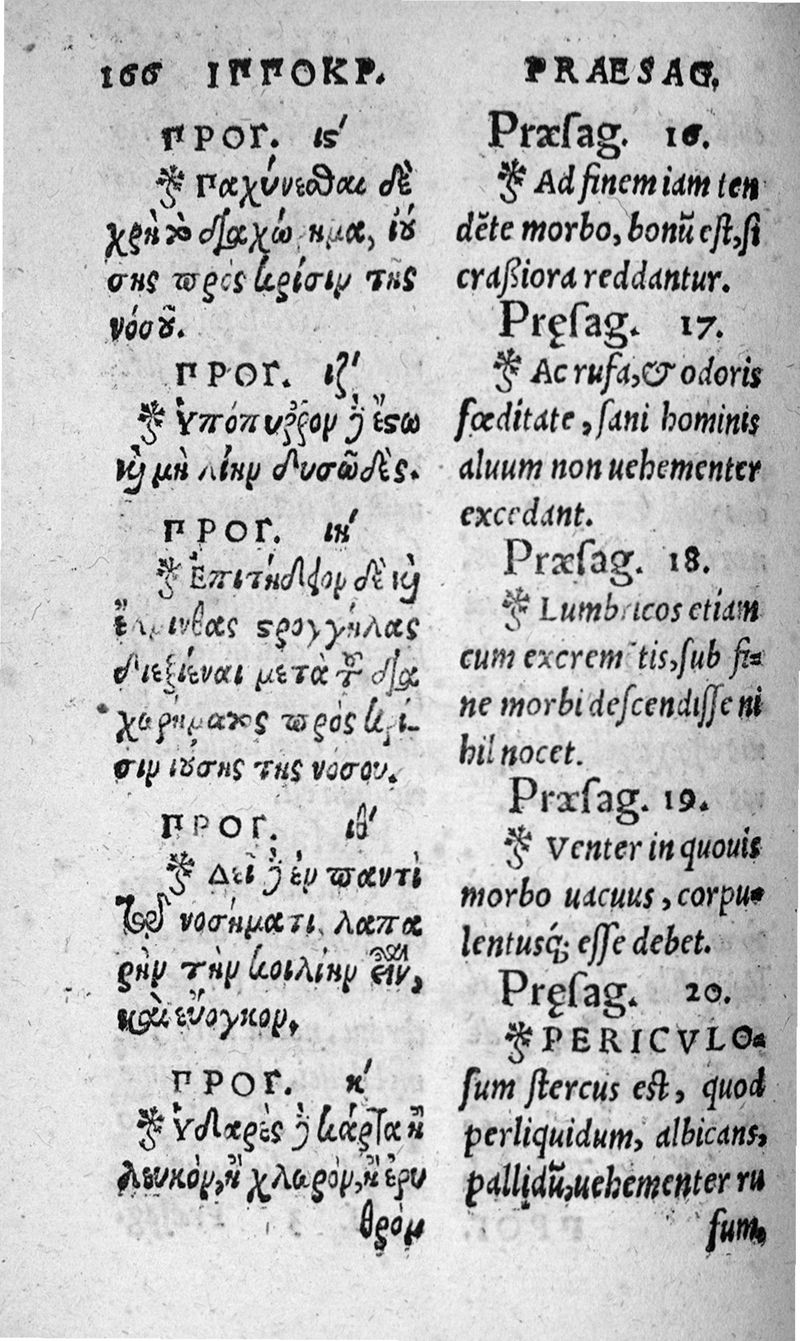 166 ΙΠΠΟΚΡ.
ΠΡΟΓ. ιϛ′
Παχύνεσθαι δὲ
χρὴ τὸ διαχώρημα, ἰού
σης πρὸς κρίσιν τῆς
νόσου.
ΠΡΟΓ. ιζ′
Υπόπυῤῥον δὲ ἔστω
καὶ μὴ λίην δυσῶδὲς.
ΠΡΟΓ. ιη′
Ἐπιτήδειον δὲ καὶ
ἕλμινθας στρογγύλας
διεξιέναι μετὰ τοῦ δια
χωρήματος πρὸς κρί-
σιν ιούσης της νοσου.
ΠΡΟΓ. ιθ′
Δεῖ δὲ ἐν παντὶ
τῷ νοσήματι, λαπα
ρὴν τὴν κοιλίην εἶναι,
καὶ εὔογκον,
ΠΡΟΓ. κ′
Υδαρὲς δὲ κάρτα ἢ
λευκὸν, ἢ χλωρὸν, ἢ ἐρυ
θρὸν
PRAESAG.
Præſag. 16.
Ad finem iam ten
dẽte morbo, bonũ eſt, ſi
craſsiora reddantur.
Pręſag. 17.
Ac rufa, & odoris
fœditate, ſani hominis
aluum non uehementer
excedant.
Præſag. 18.
Lumbricos etiam
cum excremẽtis, ſub fi-
ne morbi deſcendiſſe ni
hil nocet.
Præſag. 19.
Venter in quouis
morbo uacuus, corpu-
lentusq́; eſſe debet.
Pręſag. 20.
PERICVLO-
ſum ſtercus eſt, quod
perliquidum, albicans,
pallidũ, uehementer ru
ſum,